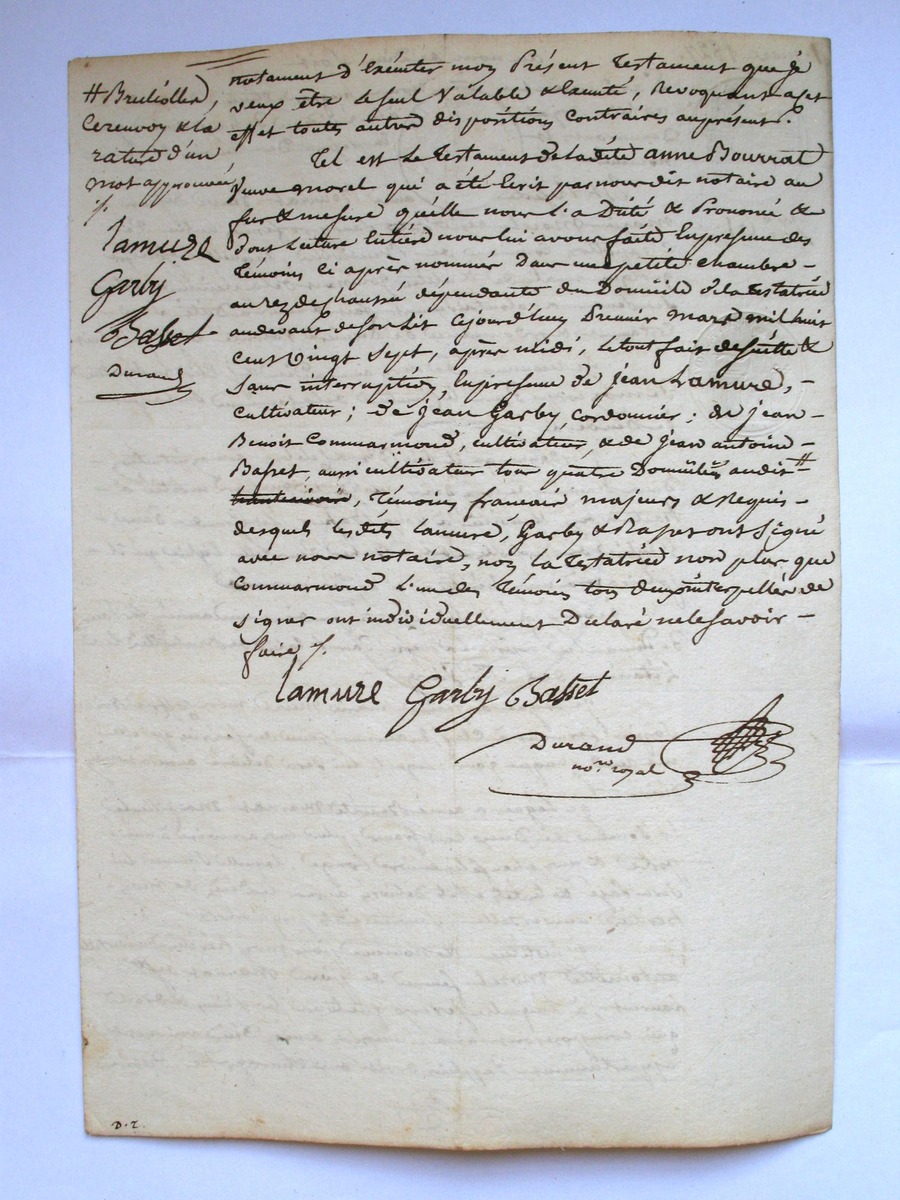 # Brulioller,
Ce renvoy & la
rature d'un
mot approuvée
./.
Lamure
Garby
Basset
Durand
notament d'Exécuter moy Présent Testament que je
veux être le seul Valable & Exécuté, Revoquant a cet
effet toutes autres dispositions Contraires au présent.
Tel est Le Testament de la dité anne Bourrat
veuve morel qui a été Ecrit par nous dit notaire au
fur & mesure qu'elle nous l'a Dicté & Prononcé &
dont Lecture Entière nous lui avons faite En presence des
Témoins Ci après nommés Dans une petite chambre –
au rez de chaussée dépendante du Domicile de la Testatrice
au devant de son Lit Cejourd'huy Premier Mars mil huit
Cent Vingt Sept, après midi, Le tout fait de suitte &
sans interruption, En presence de jean Lamure, –
Cultivateur ; de jean Garby, cordonnier ; de jean –
Benoit Commarmond, cultivateur, & de jean antoine –
Basset, aussi cultivateur tous quatre Domiciliés audit #
Témoins francais majeurs & Requis –
desquels les dits Lamure, Garby & Basset ont Signé
avec nous notaire, noy la Testatrice non plus que
Commarmond l'un des Témoins tous deux interpellés de
signer ont individuellement Déclaré ne le Savoir –
faire ./.
Lamure Garby Basset
Durand
no.re royal
D. r.